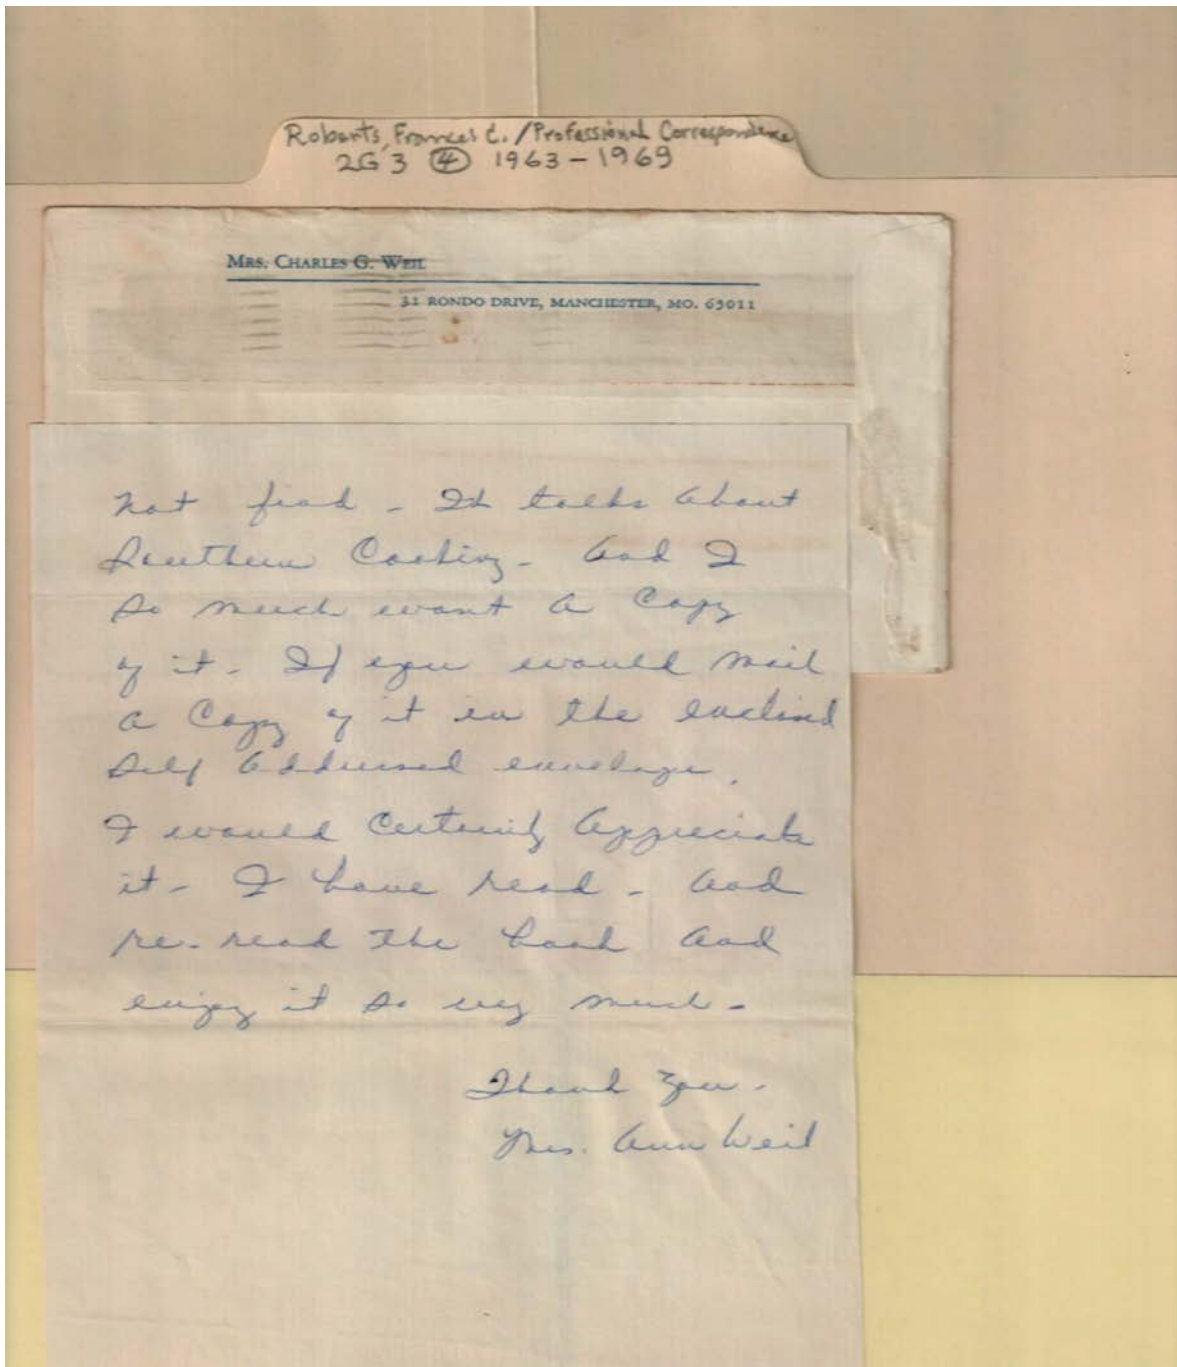 Roberts, Frances C. / Professional Correspondence
2G 3 ④ 1963 - 1969
MRS. CHARLES G. WEIL
31 RONDO DRIVE, MANCHESTER, MO. 63011
not find - It talks About
Southern Cooking - And I
so much want a Copy
of it - If you would mail
a Copy of it in the enclosed
self Addressed envelope.
I would Certainly Appreciate
it - I have read - And
re-read the book And
enjoy it so very much -
Thank You -
Mrs. Ann Weil